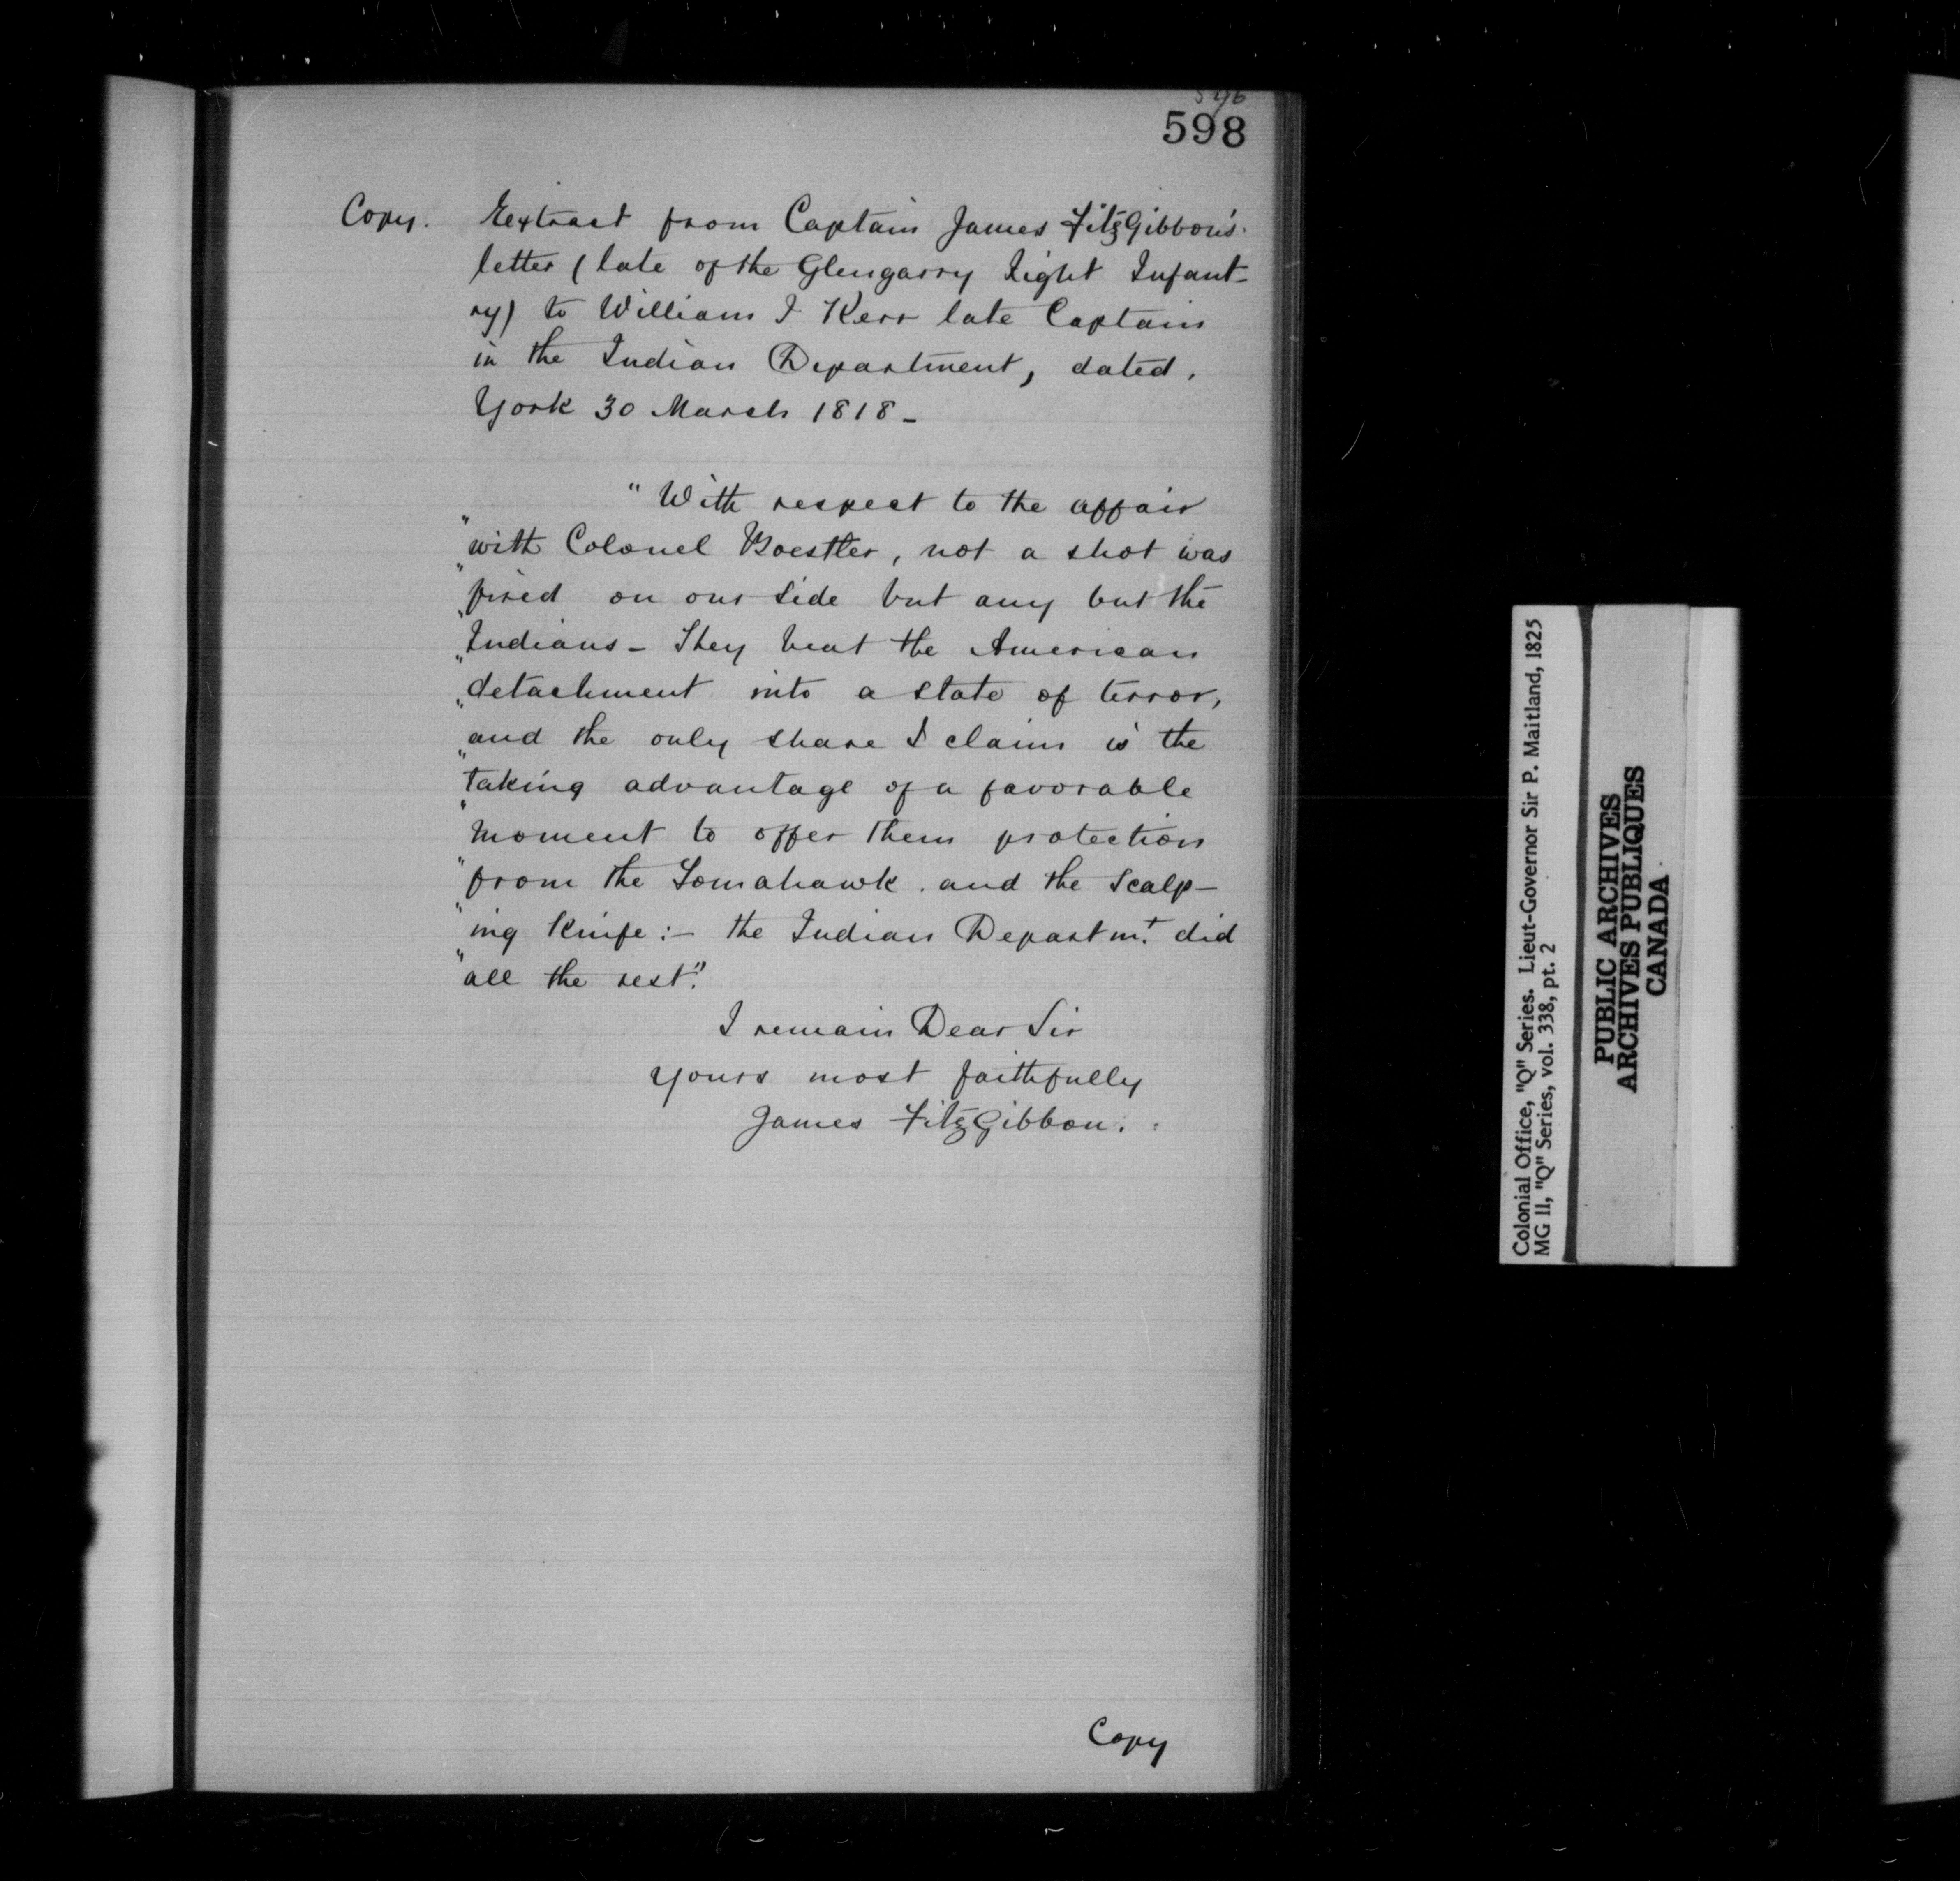 596
598
Copy. Extract from Captain James FitzGibbon's
letter (late of the Glengarry Light Infant-
ry) to William J Kerr late Captain
in the Indian Department, dated,
York 30 March 1818-
"With respect to the affair
"with Colonel Boestler, not a shot was
"fired on our side but any but the
"Indians- They beat the American
"detachment into a state of terror,
"and the only share I claim is the
"taking advantage of a favorable
"moment to offer them protection
"from the Tomahawk. and the Scalp-
"ing Knife:- the Indian Departmt. did
"all the rest."
I remain Dear Sir
yours most faithfully
James FitzGibbon.
Copy
Colonial Office, "Q" Series. Lieut-Governor Sir P. Maitland, 1825
MG 11, "Q" Series, vol. 338, pt. 2
PUBLIC ARCHIVES
ARCHIVES PUBLIQUES
CANADA